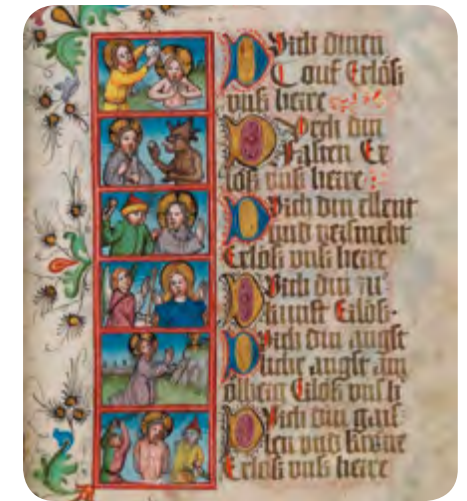 Durch dinen
Touf Erlöß
vnß herre
Durch din
Fasten Er
löß vnß herre
Durch din ellent
vnd versmeht
Erloß vnß herre
Durch din zu
kunfft Erlöß
Durch din angst
liche angst am
olberg Erloß vnß h
Durch din geiß
len vnd krone
Erloß vnß herre